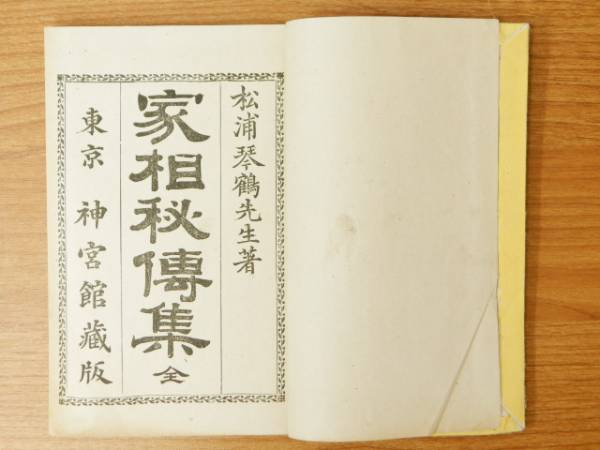 松浦琴鶴先生著
家相秘傳集 全
東京 神宮館藏版